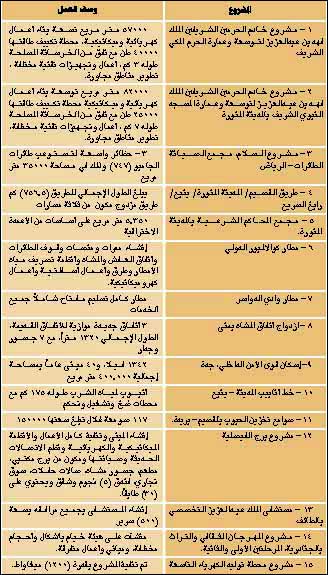 المشروع
وصف العمل
١ – مشروع خادم الحرمين الشريفين الملك
فهد بن عبدالعزيز لتوسعة وعمارة الحرم المكي
الشريف
٥٧٠٠٠ متر مربع توسعة بناء أعمال
كهربائية وميكانيكية، محطة تكييف طاقتها
٤٠٠٠٠ طن مع نفق من الخرسانة المسلحة
طوله ٣ كم، أعمال وتجهيزات تقنية مختلفة،
تطوير مناطق مجاورة.
٢ – مشروع خادم الحرمين الشريفين الملك
فهد بن عبدالعزيز لتوسعة وعمارة المسجد
النبوي الشريف بالمدينة المنورة
٨٢٠٠٠ متر مربع توسعة بناء أعمال
كهربائية وميكانيكية محطة تكييف طاقتها
٢٥٠٠٠ طن مع نفق من الخرسانة المسلحة
طوله ٧ كم أعمال وتجهيزات تقنية مختلفة،
تطوير مناطق مجاورة.
٣ – مشروع السلام، مجمع الصيانة
الطائرات – الرياض
حظائر واسعة تستوعب طائرات
الجامبو (٧٤٧) وذلك في مساحة ٣٥٠٠٠ متر
مربع
٤ – طريق القصيم/ المدينة المنورة/ ينبع/
رابغ السريع
يبلغ الطول الإجمالي للطريق (٧٥٦,٥) كم
طريق مزدوج مكون من ثلاثة مسارات
٥ – مجمع المحاكم الشرعية بالمدينة
المنورة.
٥,٣٥٠ متر مربع على أساسات من الأعمدة
الاختراقية
٦ – مطار كوالالمبور الدولي
إنشاء ممرات ومنصات وقوف الطائرات
وأنفاق العفش والمشاه وأنظمة تصريف مياه
الأمطار وطرق وأعمال أسفلتية وأعمال
كهروميكانيكية.
٧ – مطار وادي الدواسر
مطار كامل تصميم مفتاح شاملاً جميع
الخدمات
٨ – ازدواج أنفاق المشاه بمنى
٣ أنفاق جديدة موازية للأنفاق القديمة،
الطول الإجمالي ١٣٢٠ متراً، مع ٧ جسور
وجدار
٩– إسكان قوى الأمن الداخلي، جدة
١٣٤٢ فيلا، و٤٠ مبنى عاماً بمساحة
إجمالية ٤٠٠,٠٠٠ متر مربع
١٠ – خط أنابيب المدينة – ينبع
أنبوب لمياه الشرب طوله ١٧٥ كم مع
محطات ضخ وتشغيل وتحكم
١١ – صوامع تخزين الحبوب بالقصيم – بريدة.
١١٧ صومعة غلال تبلغ سعتها ١٥٠٠٠٠
١٢ – مشروع برج الفيصلية
إنشاء المبنى وتنفيذ كامل الأعمال والأنظمة
الميكانيكية والكهربائية ونظم الاتصالات
الحديثة وصيانتها ومكون من برج مكتبي،
مطعم، جسور مشاه، صالات حفلات، سوق
تجاري، فندق (٥) نجوم وشقق ويحتوي على
(٣٠) طابقاً.
١٣ – مستشفى الملك عبدالعزيز التخصصي
بالطائف
إنشاء المستشفى بجميع مرافقه بسعة
(٥٠٠) سرير
١٤ – مشروع المهرجان الثقافي والتراث
بالجنادرية المرحلتين الأولى والثانية.
منشآت على هيئة خيام بأشكال وأحجام
مختلفة، ومباني وأعمال متفرقة.
١٥ – مشروع محطة توليد الكهرباء الثامنة
تم تنفيذ المشروع بقدرة (١٢٠٠) ميغاواط.